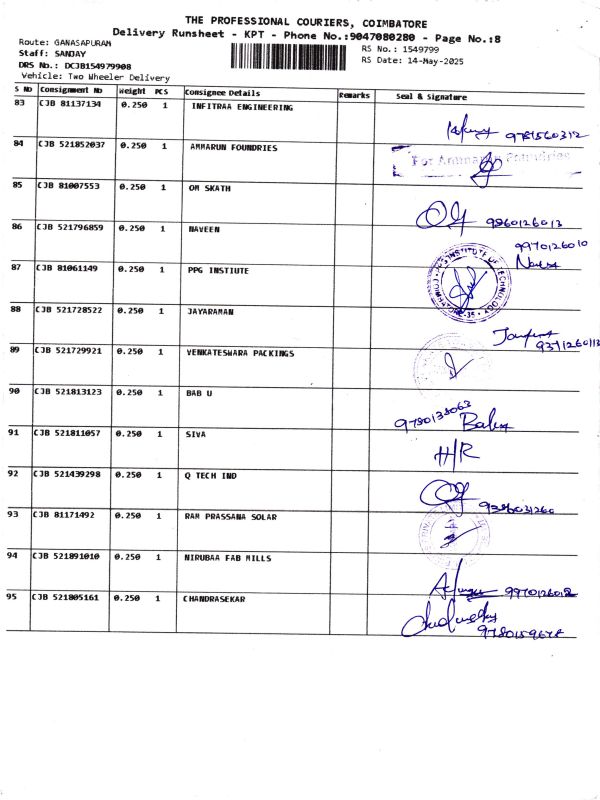 THE PROFESSIONAL COURIERS, COIMBATORE
Delivery Runsheet - KPT - Phone No.:9047080280 - Page No.:8
Route: GANASAPURAM
Staff: SANJAY
DRS No.: DCJB154979908
Vehicle: Two Wheeler Delivery
RS No.: 1549799
RS Date: 14-May-2025
S No Consignment No Weight PCS Consignee Details Remarks Seal & Signature
83 CJB 81137134 0.250 1 INFITRAA ENGINEERING
84 CJB 521852037 0.250 1 AMMARUN FOUNDRIES
For Ammarun Foundries
85 CJB 81007553 0.250 1 OM SKATH
9360126013
86 CJB 521796859 0.250 1 NAVEEN
9970126010
87 CJB 81061149 0.250 1 PPG INSTIUTE
88 CJB 521728522 0.250 1 JAYARAMAN
89 CJB 521729921 0.250 1 VENKATESWARA PACKINGS
90 CJB 521813123 0.250 1 BAB U
91 CJB 521811057 0.250 1 SIVA
H/R
92 CJB 521439298 0.250 1 Q TECH IND
93 CJB 81171492 0.250 1 RAM PRASSANA SOLAR
94 CJB 521891010 0.250 1 NIRUBAA FAB MILLS
9970126012
95 CJB 521805161 0.250 1 CHANDRASEKAR